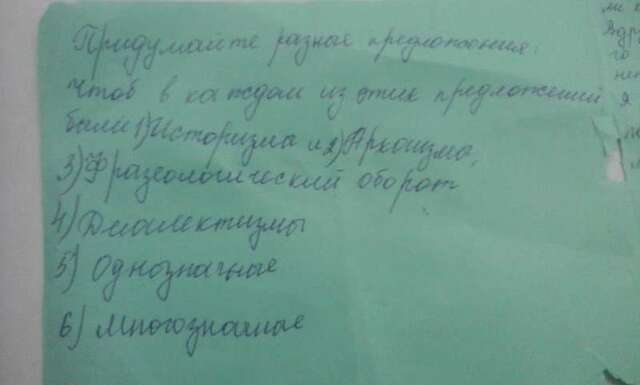 Придумайте разные предложения.
Чтоб в каждом из этих предложений
были 1) Историзмы и 2) Архаизмы,
3) Фразеологический оборот
4) Диалектизмы
5) Однозначные
6) Многозначные